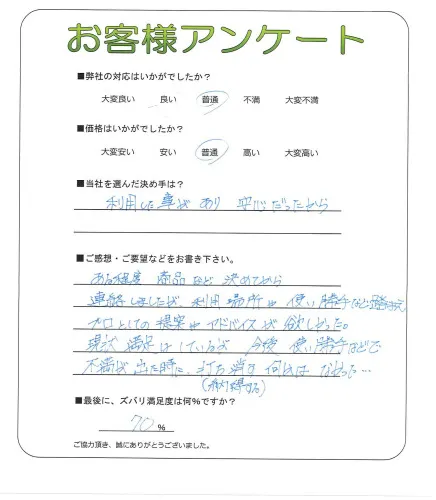 お客様アンケート
■弊社の対応はいかがでしたか?
大変良い 良い 普通 不満 大変不満
■価格はいかがでしたか?
大変安い 安い 普通 高い 大変高い
■当社を選んだ決め手は?
利用した事があり 安心だったから
■ご感想・ご要望などをお書き下さい。
ある程度 商品など 決めてから
連絡しましたが、利用場所や使い勝手など踏まえ
プロとしての提案やアドバイスが欲しかった。
現状 満足はしているが 今後 使い勝手などで
不満が出た時に、打ち消す 何かは なかった…
■最後に、ズバリ満足度は何%ですか?
70 %
ご協力頂き、誠にありがとうございました。